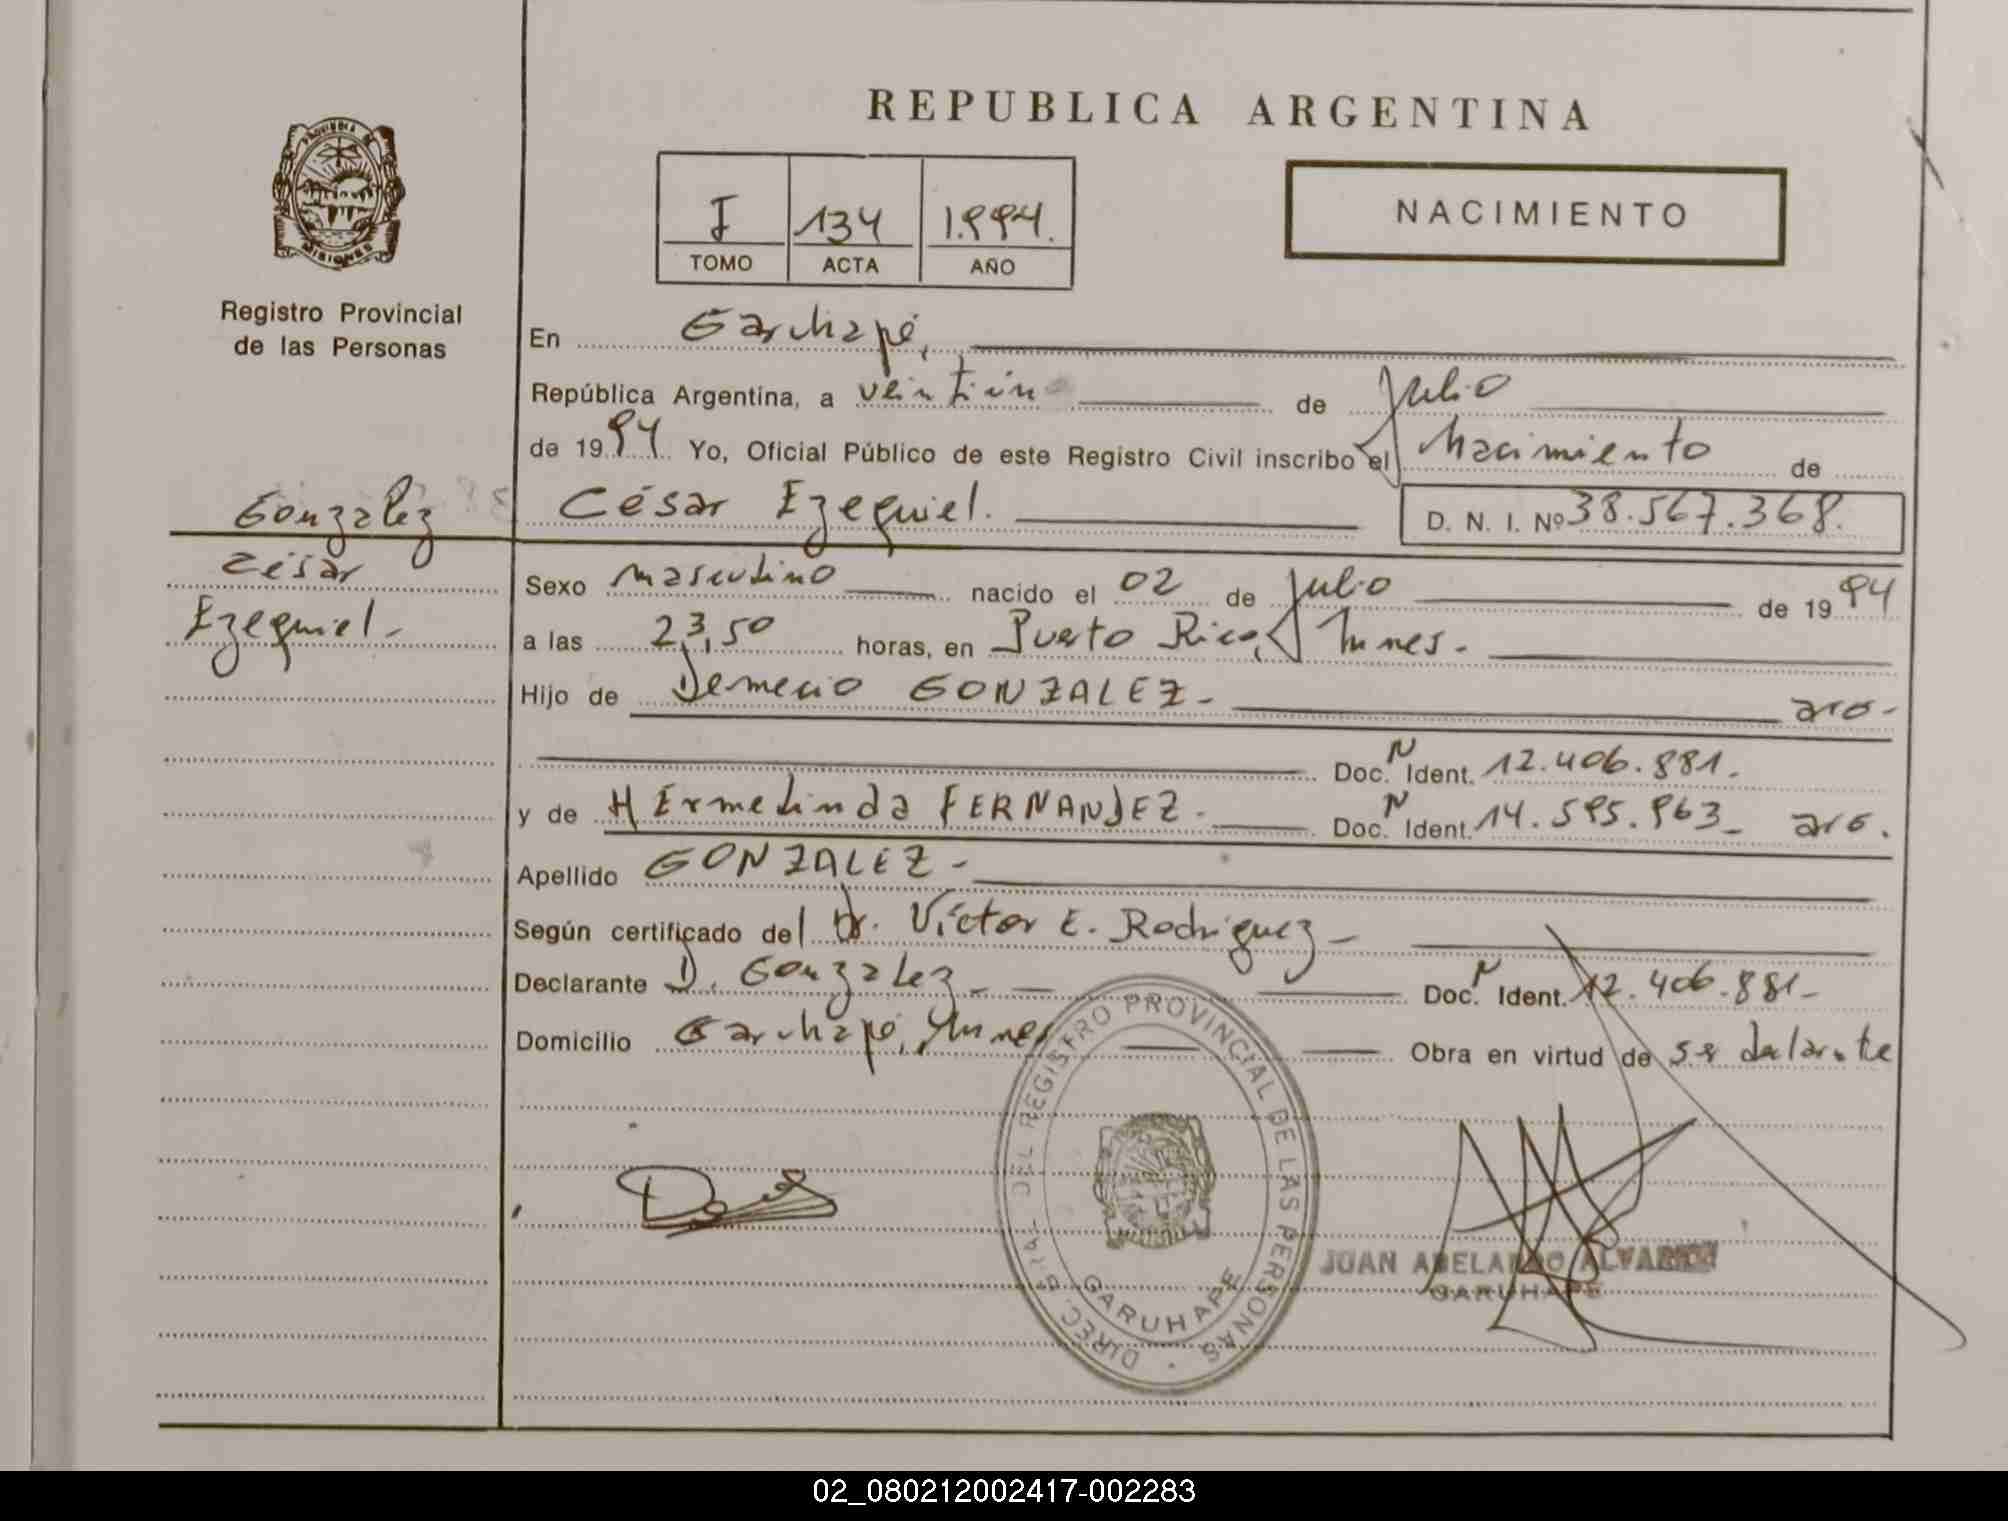 REPUBLICA ARGENTINA
PROVINCIA DE
MISIONES
Registro Provincial
de las Personas
I 134 1.994.
TOMO ACTA AÑO
NACIMIENTO
En Garuhapé,
República Argentina, a veintiuno de Julio
de 1994 Yo, Oficial Público de este Registro Civil inscribo el Nacimiento de
César Ezequiel. D. N. I. Nº 38.567.368.
Gonzalez
César
Ezequiel-
Sexo masculino nacido el 02 de Julio de 1994
a las 23,50 horas, en Puerto Rico, Mnes.-
Hijo de Demecio GONZALEZ- aro-
Doc. N Ident. 12.406.881.
y de HErmelinda FERNANDEZ- Doc. N Ident. 14.595.963- aro.
Apellido GONZALEZ-
Según certificado del Dr. Víctor E. Rodriguez-
Declarante D. Gonzalez- Doc. N Ident. 12.406.881-
Domicilio Garuhapé, Mnes Obra en virtud de ser declarante
DIREC. GRAL. DEL REGISTRO PROVINCIAL DE LAS PERSONAS
GARUHAPE
JUAN ABELARDO
GARUHAPE
02_080212002417-002283